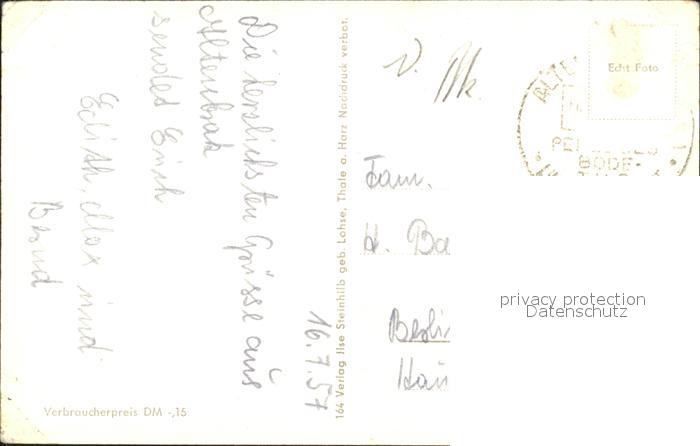 Die herzlichsten Grüsse aus
Altenbrak
sendet Euch
Edith, Max und
Bernd
16.7.57
164 Verlag Jlse Steinhilb geb. Lohse, Thale a. Harz Nachdruck verbot.
Verbraucherpreis DM -,15
Echt Foto
BODE-
Fam.
H. Ba
Berli
privacy protection
Datenschutz